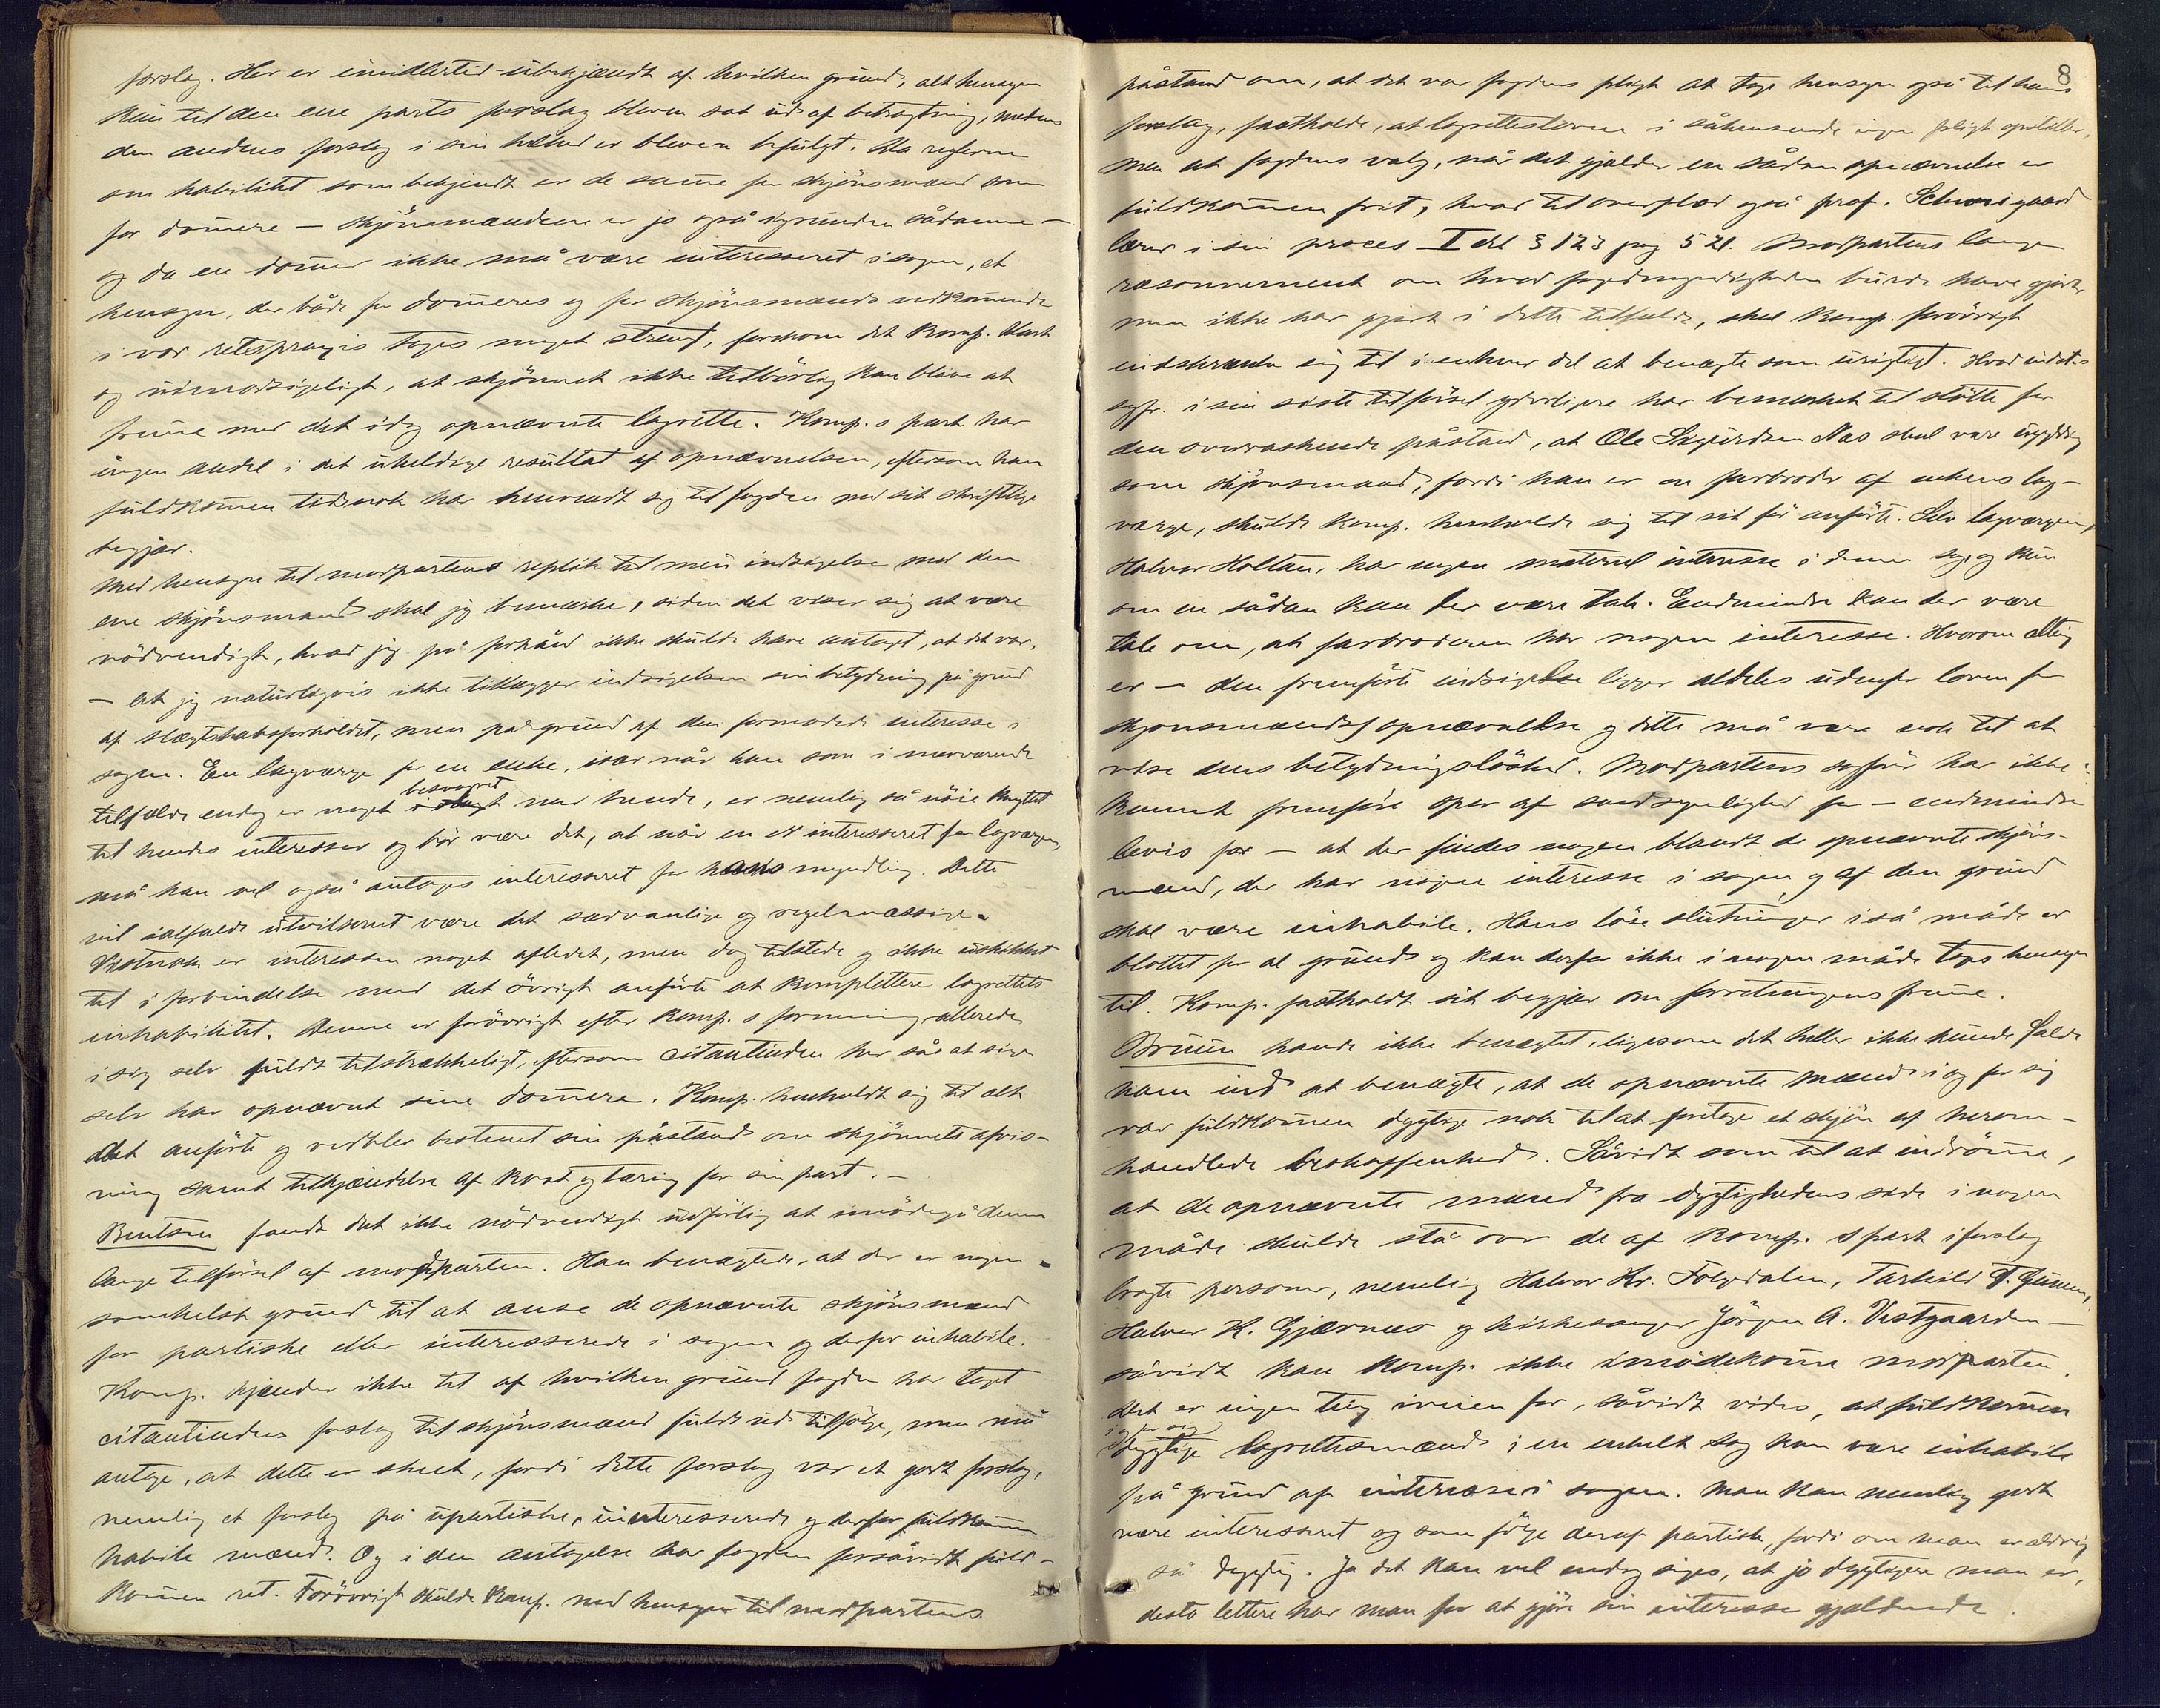 forslag. Her er imidlertid ubekjændt af hvilken grund, alt hensyn
kun til den ene parts forslag bleven sat ud af betragtning, medens
den andens forslag i sin helhed er bleven befulgt. Da reglerne
om habilitet som bekjendt er de samme for skjönsmænd som
for dom̄ere — skjönsmændene er jo også igrunden sådanne —
og da en dom̄er ikke må være interesseret i sagen, et
hensyn, der både for dom̄eres og for skjönsmænds vedkom̄ende
i vor retspraxis tages meget strengt, forekom det Komp. klart
og uimodsigeligt, at skjönnet ikke tilbörlig kan blive at
frem̄e med det idag opnævnte lagrette. Komp.s part har
ingen andel i det uheldige resultat af opnævnelsen, eftersom han
fuldkom̄en tidsnok har henvendt sig til fogden med sit skriftlige
begjær.
Med hensyn til modpartens replik til min indsigelse mod den
ene skjönsmand skal jeg bemærke, siden det viser sig at være
nödvendigt, hvad jeg på forhånd ikke skulde have antaget, at det var,
— at jeg naturligvis ikke tillægger indsigelsen sin betydning på grund
af slægtskabsforholdet, men på grund af den formodede interesse i
sagen. En lagværge for en enke, især når han som i nærværende
besvogret
tilfælde endog er noget med hende, er nemlig så nöie knyttet
til hendes interesser og bör være det, at når en er interesseret for lagværgen,
må han vel også antages interesseret for hans myndling. Dette
vil ialfald utvilsomt være det sædvanlige og regelmæssige.
Vistnok er interessen noget afledet, men dog tilstede og ikke uskikket
til i forbindelse med det övrigt anförte at komplettere lagrettets
inhabilitet. Denne er forövrigt efter Komp.s formening allerede
i sig selv fuldt tilstrækkeligt, eftersom citantinden har så at sige
selv har opnævnt sine dom̄ere. Komp. henholdt sig til alt
det anförte og vedblev bestemt sin påstand om skjönnets afvis-
ning samt tilkjendelse af kost og tæring for sin part. —
Bentsen fandt det ikke nödvendigt udförlig at imödegå denne
lange tilförsel af modparten. Han benægtede, at der er nogen
somhelst grund til at anse de opnævnte skjönsmænd
for partiske eller interesserede i sagen og derfor inhabile.
Komp. kjender ikke til af hvilken grund fogden har taget
citantindens forslag til skjönsmænd fuldt ud tilfölge, men må
antage, at dette er skeet, fordi dette forslag var et godt forslag,
nemlig et forslag på upartiske, uinteresserede og derfor fuldkom̄en
habile mænd. Og i den antagelse har fogden forsåvidt fuld-
kom̄en ret. Forövrigt skulde Komp. med hensyn til modpartens
8
påstand om, at det var fogdens pligt at tage hensyn også til hans
forslag, fastholde, at lagretteloven i såhenseende ingen pligt opstiller,
men at fogdens valg, når det gjælder en sådan opnævnelse er
fuldkom̄en frit, hvad til overflod også prof. Schweigaard
lærer i sin proces I del § 123 pag 521. Modpartens lange
ræsonnement om hvad fogedmyndigheden burde have gjort,
men ikke har gjort i dette tilfælde, skal Komp. forövrigt
indskrænke sig til i enhver del at benægte som urigtigt. Hvad indst.s
sagf. i sin siste tilförsel yderligere har bemærket til stötte for
den overraskende påstand, at Ole Sigurdsen Næs skal være ugyldig
som skjönsmand, fordi han er en farbroder af enkens lag-
værge, skulde Komp. henholde sig til sit för anförte. Selv lagværgen,
Halvor Holtan, har ingen materiel interesse i denne sag og kun
om en sådan kan der være tale. Endmindre kan der være
tale om, at farbroderen har nogen interesse. Hvorom alting
er — den fremförte indsigelse ligger aldeles udenfor loven for
skjönsmænds opnævnelse og dette må være nok til at
vise dens betydningslöshed. Modpartens sagförer har ikke
kunnet fremföre spor af sandsynlighed for — endmindre
bevis for — at der findes nogen blandt de opnævnte skjöns-
mænd, der har nogen interesse i sagen og af den grund
skal være inhabile. Hans löse slutninger i så måde er
blottet for al grund og kan derfor ikke i nogen måde tages hensyn
til. Komp. fastholdt sit begjær om forretningens frem̄e.
Bruun havde ikke benægtet, ligesom det heller ikke kunde falde
ham ind at benægte, at de opnævnte mænd i og for sig
var fuldkom̄en dygtige nok til at foretage et skjön af herom-
handlede beskaffenhed. Såvidt som til at indröm̄e,
at de opnævnte mænd fra dygtighedens side i nogen
måde skulde stå over de af Komp.s part i forslag
bragte personer, nemlig Halvor Hr. Folgedalen, Tarkild T. ,
Halvor K. Gjærnæs og kirkesanger Jörgen A. Vestgaarden —
såvidt kan Komp. ikke imödekom̄e modparten.
Det er ingen ting iveien for, såvidt vides, at fuldkom̄en
i og for sig
dygtige lagrettesmænd i en enkelt sag kan være inhabile
på grund af interesse i sagen. Man kan nemlig godt
være interesseret og som fölge deraf partisk, fordi om man er aldrig
så dygtig. Ja det kan vel endog siges, at jo dygtigere man er,
desto lettere har man for at gjöre sin interesse gjældende